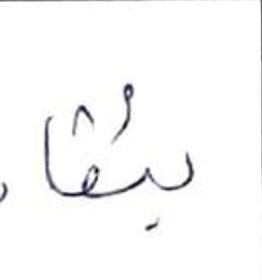 يُقا